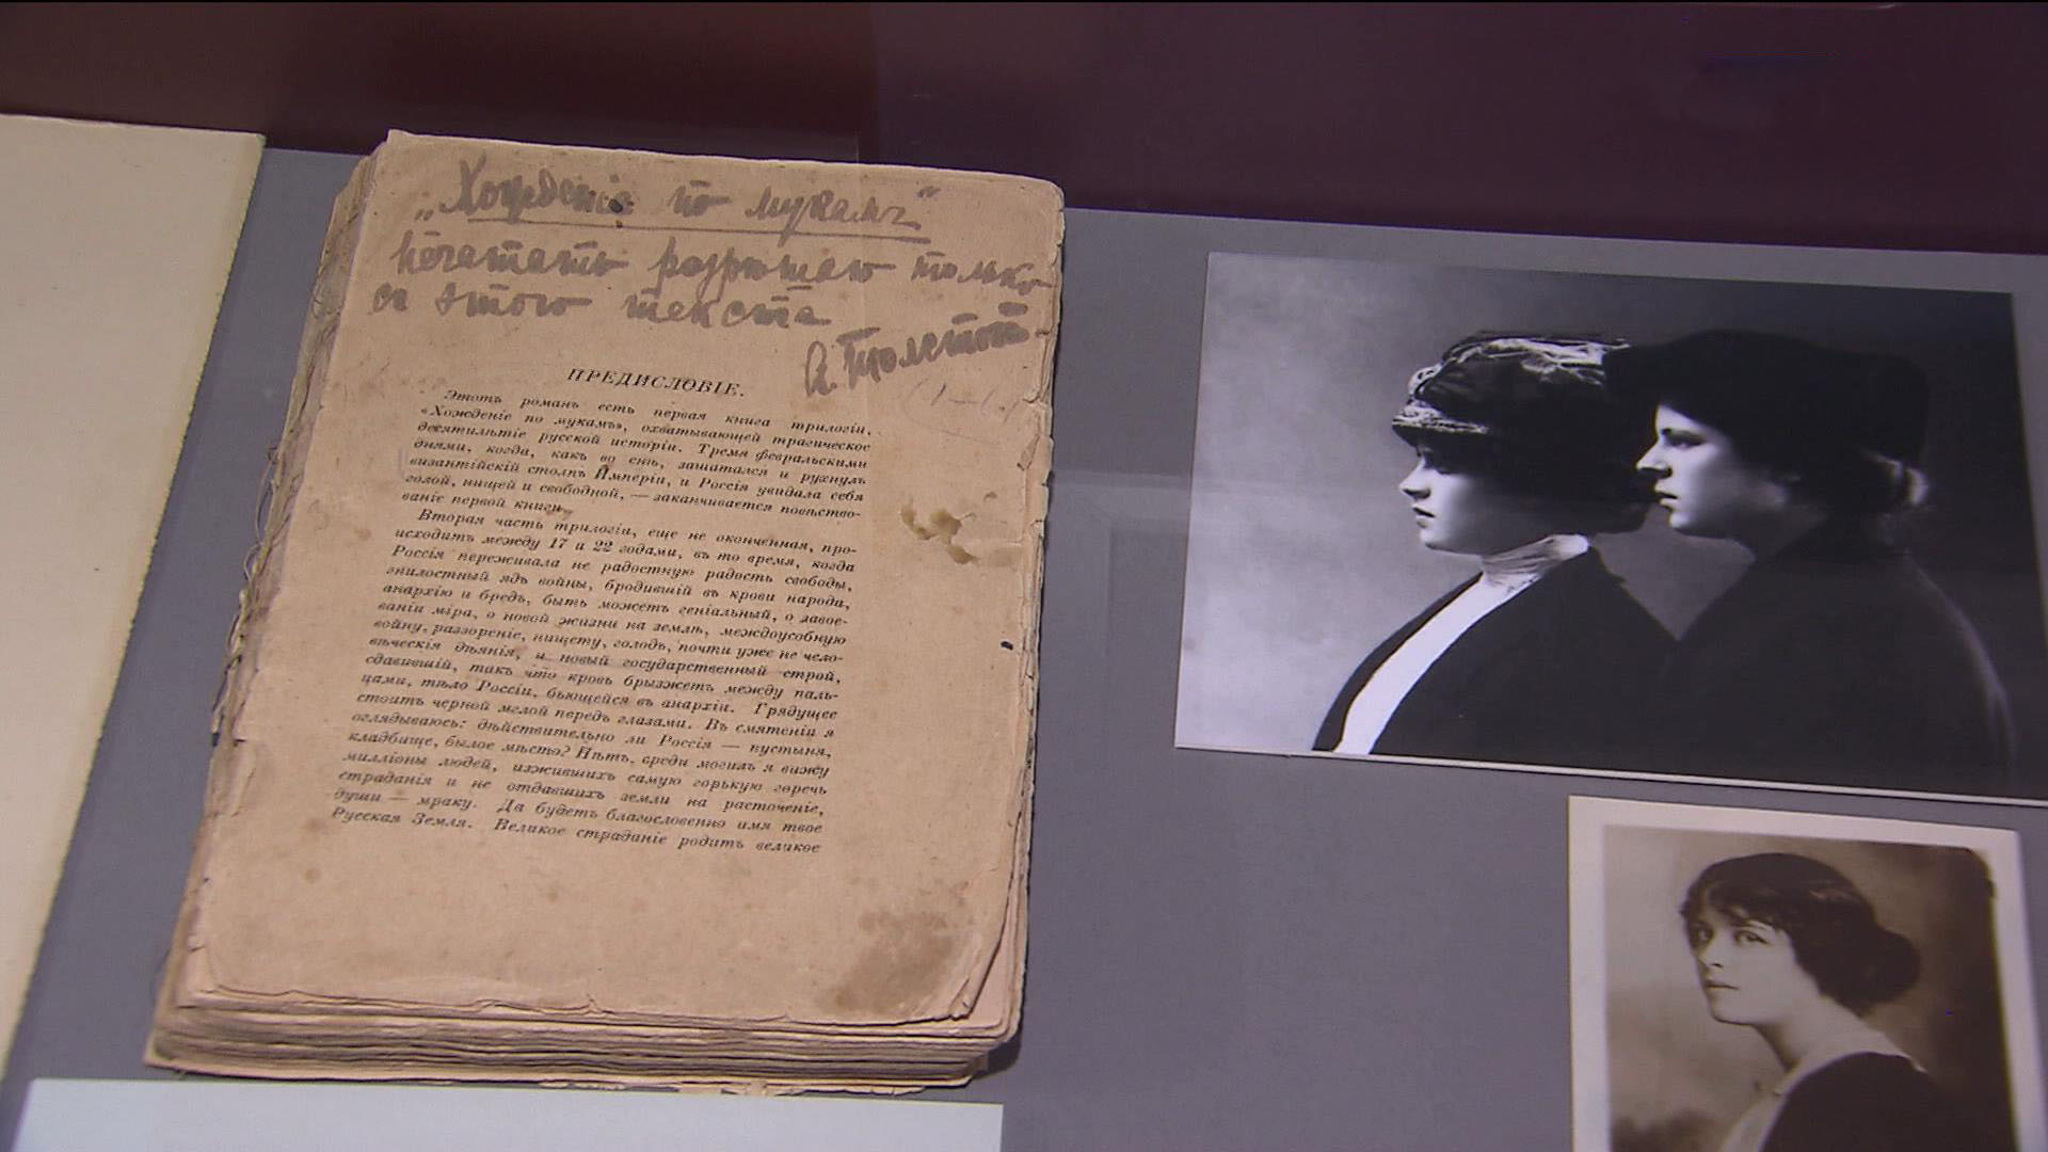 „Хожденіе по мукамъ“
Печатать разрешаю только
с этого текста
А. Толстой
ПРЕДИСЛОВІЕ.
Этотъ романъ есть первая книга трилогіи,
«Хожденіе по мукамъ», охватывающей трагическое
десятилѣтіе русской исторіи. Тремя февральскими
днями, когда, какъ во снѣ, зашатался и рухнулъ
византійскій столпъ Имперіи, и Россія увидала себя
голой, нищей и свободной, — заканчивается повѣство-
ваніе первой книги.
Вторая часть трилогіи, еще не оконченная, про-
исходитъ между 17 и 22 годами, въ то время, когда
Россія переживала не радостную радость свободы,
гнилостный ядъ войны, бродившій въ крови народа,
анархію и бредъ, быть можетъ геніальный, о завое-
ваніи міра, о новой жизни на землѣ, междоусобную
войну, раззореніе, нищету, голодъ, почти уже не чело-
вѣческія дѣянія, и новый государственный строй,
сдавившій, такъ что кровь брызжетъ между паль-
цами, тѣло Россіи, бьющейся въ анархіи. Грядущее
стоитъ черной мглой передъ глазами. Въ смятеніи я
оглядываюсь: дѣйствительно ли Россія — пустыня,
кладбище, былое мѣсто? Нѣтъ, среди могилъ я вижу
милліоны людей, изжившихъ самую горькую горечь
страданія и не отдавшихъ земли на расточеніе,
души — мраку. Да будетъ благословенно имя твое
Русская Земля. Великое страданіе родитъ великое